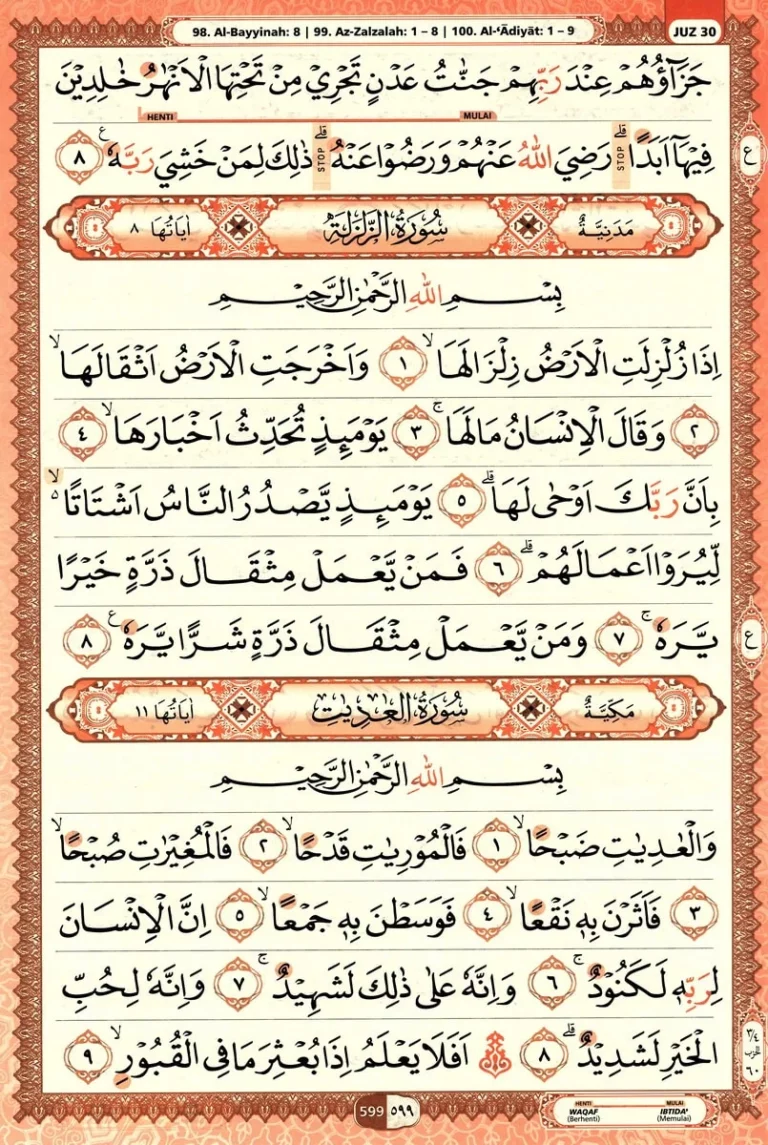 98. Al-Bayyinah: 8 | 99. Az-Zalzalah: 1 – 8 | 100. Al-‘Ādiyāt: 1 – 9
JUZ 30
جَزَاۤؤُهُمْ عِنْدَ رَبِّهِمْ جَنّٰتُ عَدْنٍ تَجْرِيْ مِنْ تَحْتِهَا الْاَنْهٰرُ خٰلِدِيْنَ
HENTI MULAI
فِيْهَآ اَبَدًا ۗ رَضِيَ اللّٰهُ عَنْهُمْ وَرَضُوْا عَنْهُ ۗ ذٰلِكَ لِمَنْ خَشِيَ رَبَّهٗ ࣖ ٨
STOP STOP
ع
مَدَنِيَّةٌ سُوْرَةُ الزَّلْزَلَةِ اٰيَاتُهَا ٨
بِسْمِ اللّٰهِ الرَّحْمٰنِ الرَّحِيْمِ
اِذَا زُلْزِلَتِ الْاَرْضُ زِلْزَالَهَا ۙ ١ وَاَخْرَجَتِ الْاَرْضُ اَثْقَالَهَا ۙ
٢ وَقَالَ الْاِنْسَانُ مَا لَهَا ۚ ٣ يَوْمَىِٕذٍ تُحَدِّثُ اَخْبَارَهَا ۙ ٤
بِاَنَّ رَبَّكَ اَوْحٰى لَهَا ۗ ٥ يَوْمَىِٕذٍ يَّصْدُرُ النَّاسُ اَشْتَاتًا ۙ ەۙ
لِّيُرَوْا اَعْمَالَهُمْ ۗ ٦ فَمَنْ يَّعْمَلْ مِثْقَالَ ذَرَّةٍ خَيْرًا
يَّرَهٗ ۚ ٧ وَمَنْ يَّعْمَلْ مِثْقَالَ ذَرَّةٍ شَرًّا يَّرَهٗ ࣖ ٨
ع
مَكِّيَّةٌ سُوْرَةُ الْعٰدِيٰتِ اٰيَاتُهَا ١١
بِسْمِ اللّٰهِ الرَّحْمٰنِ الرَّحِيْمِ
وَالْعٰدِيٰتِ ضَبْحًا ۙ ١ فَالْمُوْرِيٰتِ قَدْحًا ۙ ٢ فَالْمُغِيْرٰتِ صُبْحًا ۙ
٣ فَاَثَرْنَ بِهٖ نَقْعًا ۙ ٤ فَوَسَطْنَ بِهٖ جَمْعًا ۙ ٥ اِنَّ الْاِنْسَانَ
لِرَبِّهٖ لَكَنُوْدٌ ۚ ٦ وَاِنَّهٗ عَلٰى ذٰلِكَ لَشَهِيْدٌ ۚ ٧ وَاِنَّهٗ لِحُبِّ
الْخَيْرِ لَشَدِيْدٌ ۗ ٨ ۞ اَفَلَا يَعْلَمُ اِذَا بُعْثِرَ مَا فِى الْقُبُوْرِ ۙ ٩
٣/٤
الحزب
٦٠
599 ٥٩٩
HENTI MULAI
WAQAF IBTIDA'
(Berhenti) (Memulai)